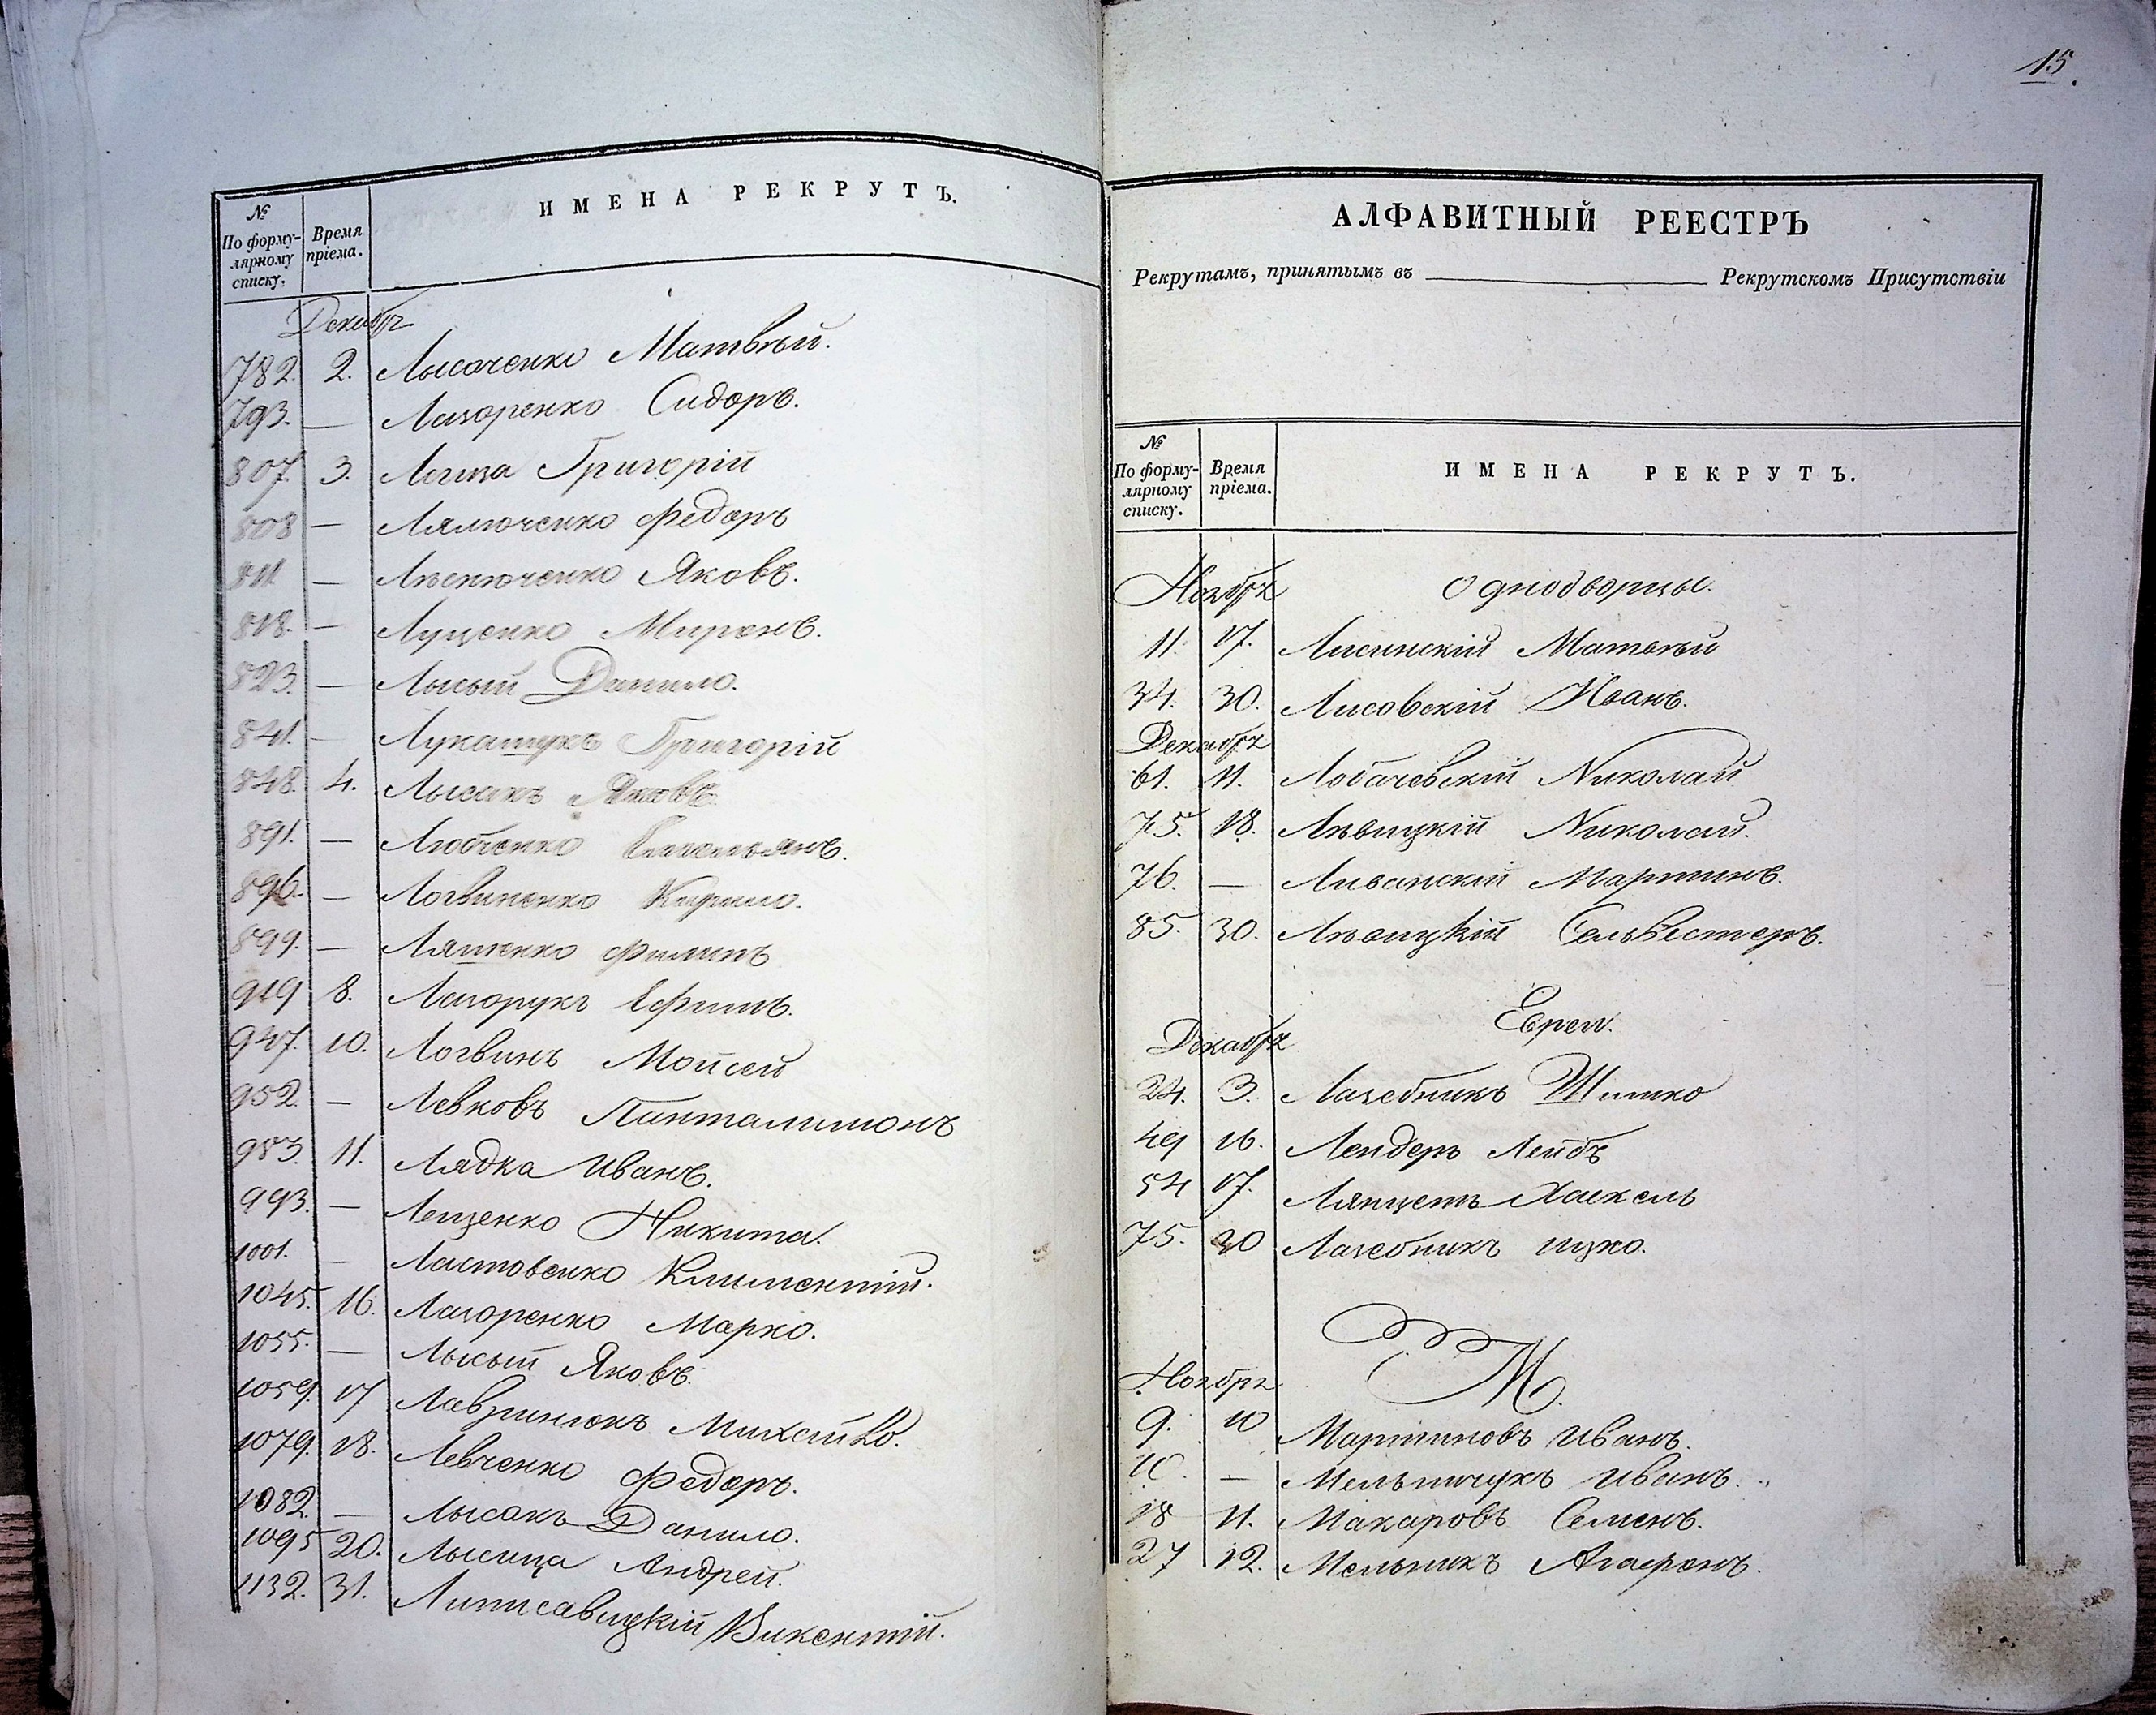 ИМЕНА РЕКРУТЪ.
№ По форму-лярному списку.
Время пріема.
Декабрь
782. 2. Лысаченко Матвѣй.
793. — Лазоренко Сидоръ.
807. 3. Логиза Григорій
808 — Лялюченко Федоръ
811 — Лѣснюченко Яковъ.
818. — Луценко Миронъ.
823. — Лысый Данило.
841. — Лукашукъ Григорій
848. 4. Лысакъ Яковъ.
891. — Любченко Емельянъ.
896. — Логвиненко Кирило.
899. — Ляшенко Филипъ
919 8. Лазорукъ Ефимъ.
947. 10. Логвинъ Мойсей
952. — Левковъ Панталимонъ
983. 11. Лядка Иванъ.
993. — Лещенко Никита.
1001. — Ластовенко Климентій.
1045. 16. Лазоренко Марко.
1055. — Лысый Яковъ.
1059. 17 Лавринюкъ Михайло.
1079. 18. Левченко Федоръ.
1082. — Лысакъ Данило.
1095 20. Лысица Андрей.
1132. 31. Липисавицкій Викентій.
15.
АЛФАВИТНЫЙ РЕЕСТРЪ
Рекрутамъ, принятымъ въ Рекрутскомъ Присутствіи
№ По форму-лярному списку.
Время пріема.
ИМЕНА РЕКРУТЪ.
Ноябрь Однодворцы.
11 17. Лисинскій Матвѣй
34. 30. Лисовскій Иванъ.
Декабрь
61. 11. Лобачевскій Николай
75. 18. Лѣвицкій Николай.
76. — Ливанскій Мартинъ.
85. 30. Лѣвицкій Сельвестеръ.
Евреи.
Декабрь
24. 3. Лазебникъ Шлиомко
49 16. Лендеръ Лейбъ
54 17. Ляпцетъ Хаскель
75. 20 Лазебникъ Ицко.
М.
Ноябрь
9. 10 Мартиновъ Иванъ.
10. — Мельничукъ Иванъ.
18 11. Макаровъ Семенъ.
27 12. Мельникъ Агаеронъ.